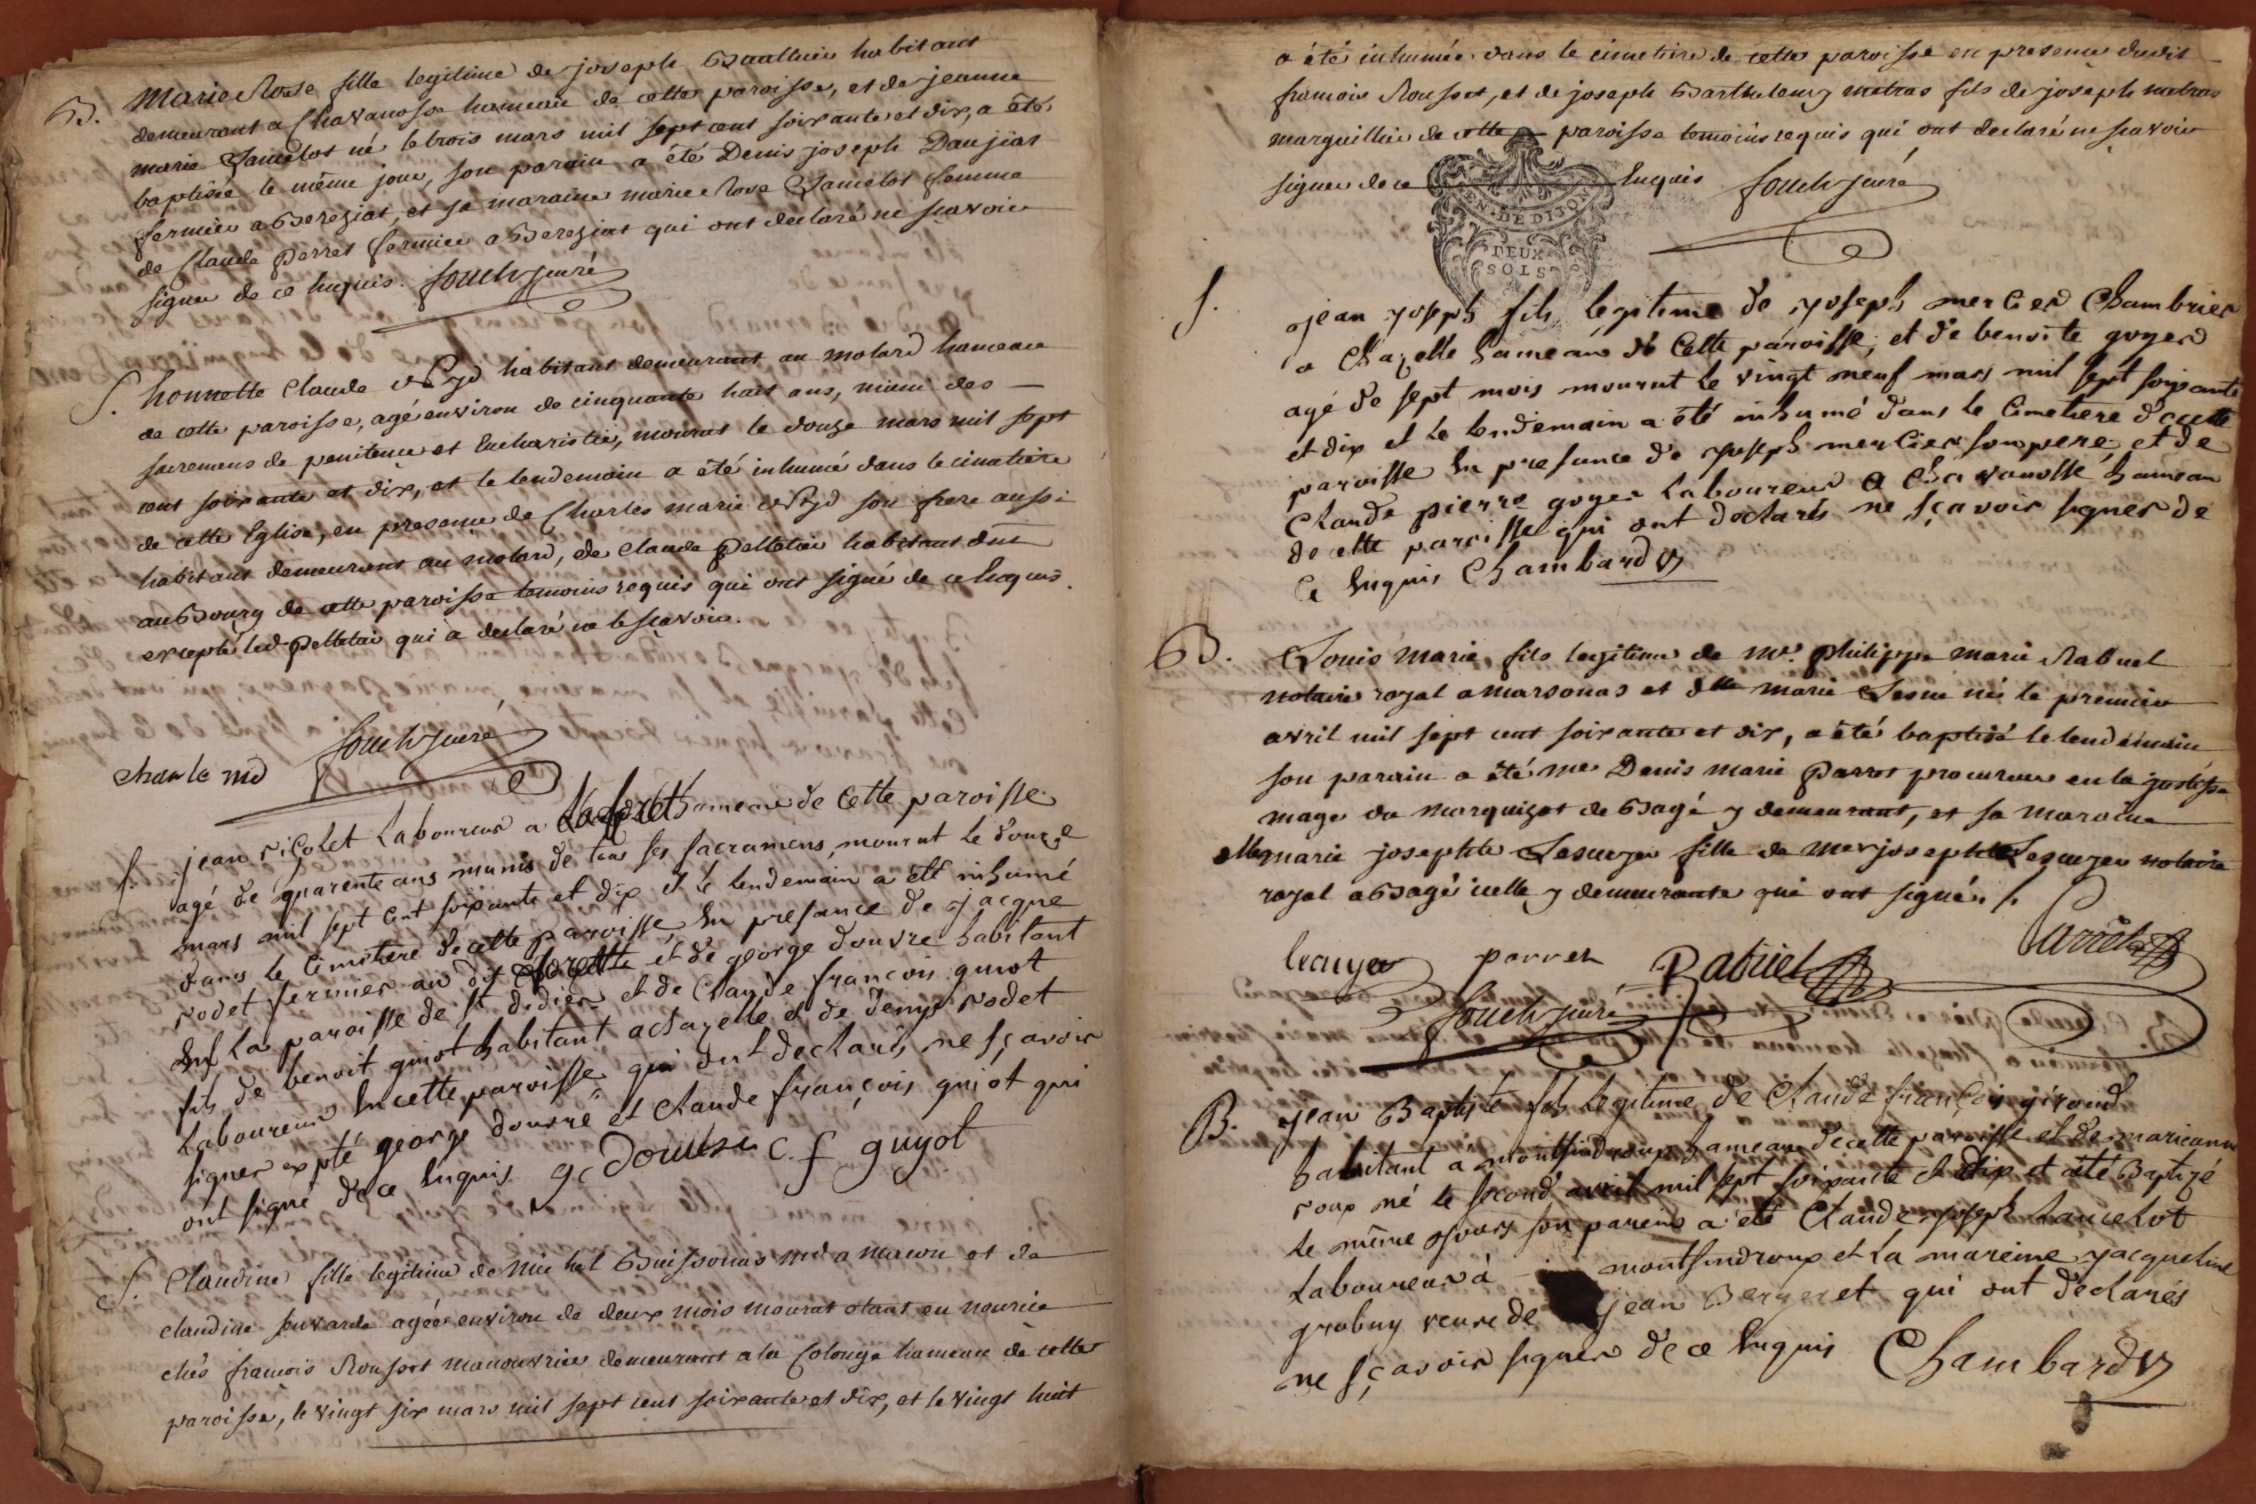 B. Marie Rose fille legitime de joseph Gauthier habitant
demeurant a Chavanosse hameau de cette paroisse, et de jeanne
marie Lancelot né le trois mars mil sept cent soixante et dix, a été
baptisée le même jour, son parain a été Denis joseph Daujias
fermier a Bereziat, et sa maraine marie Rose Lancelot femme
de Claude Perret fermier a Bereziat qui ont declaré ne scavoir
signer de ce Enquis. curé
S. honnette Claude habitant demeurant au molard hameau
de cette paroisse, agé environ de cinquante huit ans, muni des
sacremens de penitence et Eucharistie, mourut le douze mars mil sept
cent soixante et dix, et le lendemain a été inhumé dans le cimetiere
de cette Eglise, en presence de Charles marie son frere aussi
habitant demeurant au molard, de Claude Pelletier habitant
au Bourg de cette paroisse temoins requis qui ont signé de ce Enquis
excepté led. Pelletier qui a declaré ne le scavoir.
curé
S. jean Laboureur a La foret hameau de Cette paroisse
agé de quarente ans munis de tous ses sacramens, mourut le douze
mars mil sept cent soixante et dix et le lendemain a été inhumé
dans le Cimetiere de cette paroisse En presance de jacque
rodet fermier au dit foret et de george douvre habitant
sur La paroisse de st didier et de Claude françois guiot
fils de benoit guiot habitant a chazelle et de denys rodet
Laboureur En cette paroisse qui ont declarés ne sçavoir
signer expté george douvre et Claude françois guiot qui
ont signé de ce Enquis g Douvre c. f guyot
S. Claudine fille legitime de Michel Buissonas md a macon et de
claudine agée environ de deux mois mourut etant en nourice
chés françois Rousset manouvrier demeurant a la Colonge hameau de cette
paroisse, le vingt six mars mil sept cent soixante et dix, et le vingt huit
a été inhumée dans le cimetiere de cette paroisse en presence dudit
francois Rousset, et de joseph Barthelemy metras fils de joseph metras
marguillier de cette paroisse temoins requis qui ont declaré ne scavoir
signer de ce Enquis curé
GEN. DE DIJON
DEUX
SOLS
S. jean joseph fils legitime de joseph mercier Chambrier
a Chazelle hameau de Cette paroisse, et de benoite goyer
agé de sept mois mourut le vingt neuf mars mil sept soixante
et dix et le lendemain a été inhumé dans le Cimetiere de cette
paroisse En presance de joseph mercier son pere, et de
Claude pierre goyer Laboureur a Chavanosse hameau
de cette paroisse qui ont declarés ne sçavoir signer de
Ce Enquis Chambard
B. Louis Marie fils legitime de Me. Philippe Marie Rabuel
notaire royal a marsonas et dlle marie né le premier
avril mil sept cent soixante et dix, a été baptisé le lendemain
son parain a été me Denis Marie Parrot procureur en la justisse
mage du Marquizat de Bagé y demeurant, et sa maraine
dlle marie josephte Lescuyer fille de me joseph Lescuyer notaire
royal a Bagé icelle y demeurante qui ont signés.
Lescuyer perret Rabuel Parrot
curé
B. jean Baptiste fils Legitime de Claude françois giroud
habitant a montsindroux hameau de cette paroisse et de marieanne
roux né le second avril mil sept soixante et dix et été Baptizé
le même jour son parein a été Claude joseph Lancelot
Laboureur à montsindroux et la mareine jacqueline
veuve de jean Bergeret qui ont declarés
ne sçavoir signer de ce Enquis Chambard